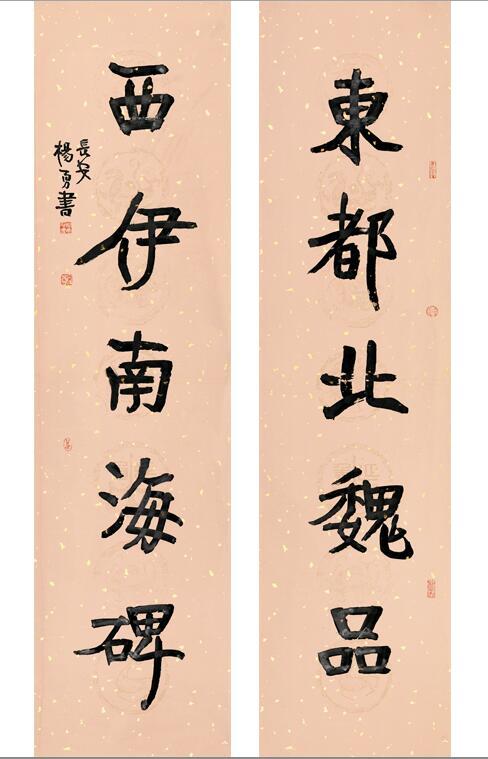 東都北魏品
西伊南海碑
長安
楊勇書